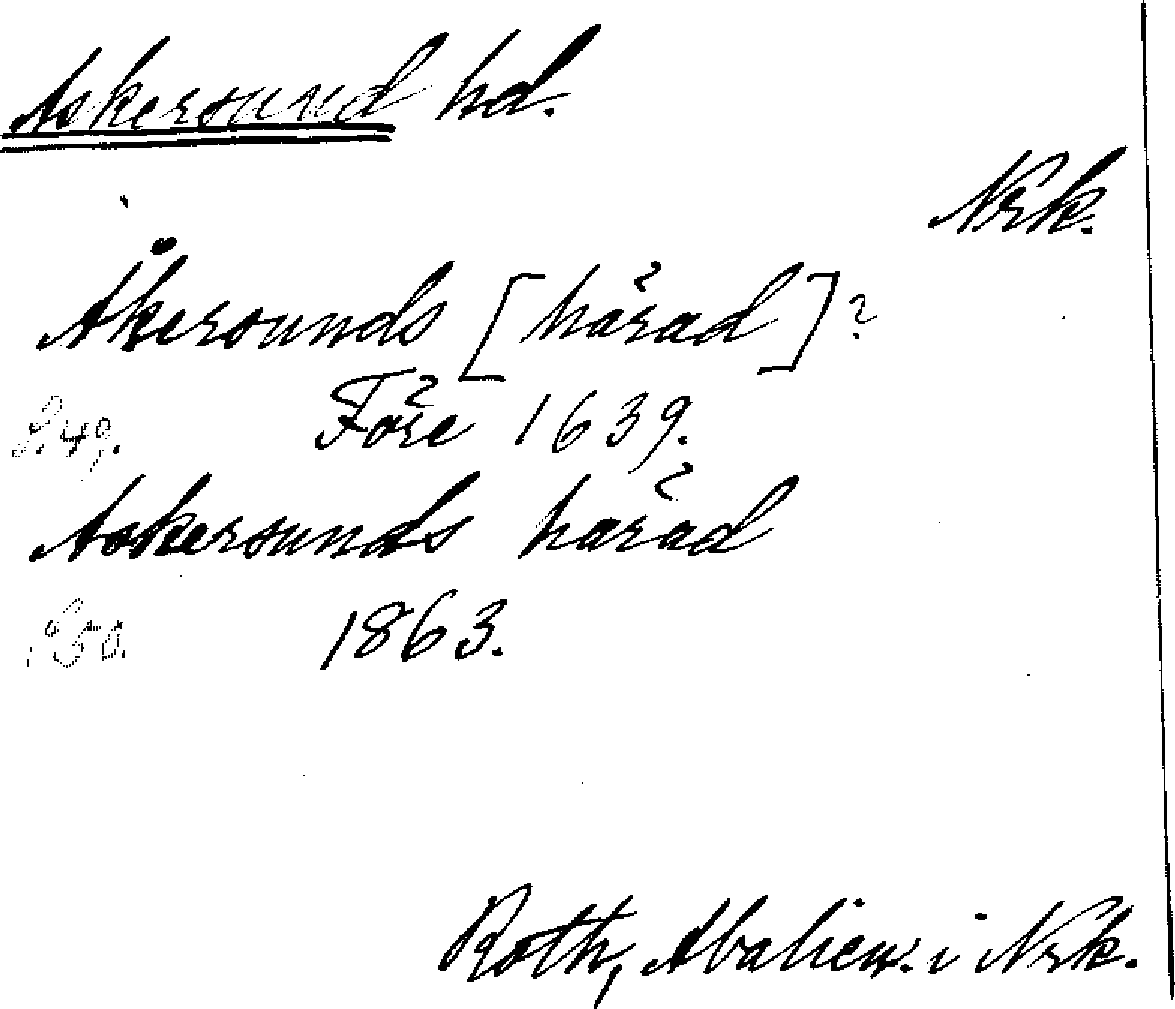 Askersund hd.
Nrk.
Åkersunds [härad]?
S. 49. Före 1639.
Askersunds härad
S. 50. 1863.
Roth, Abalien. i Nrk.